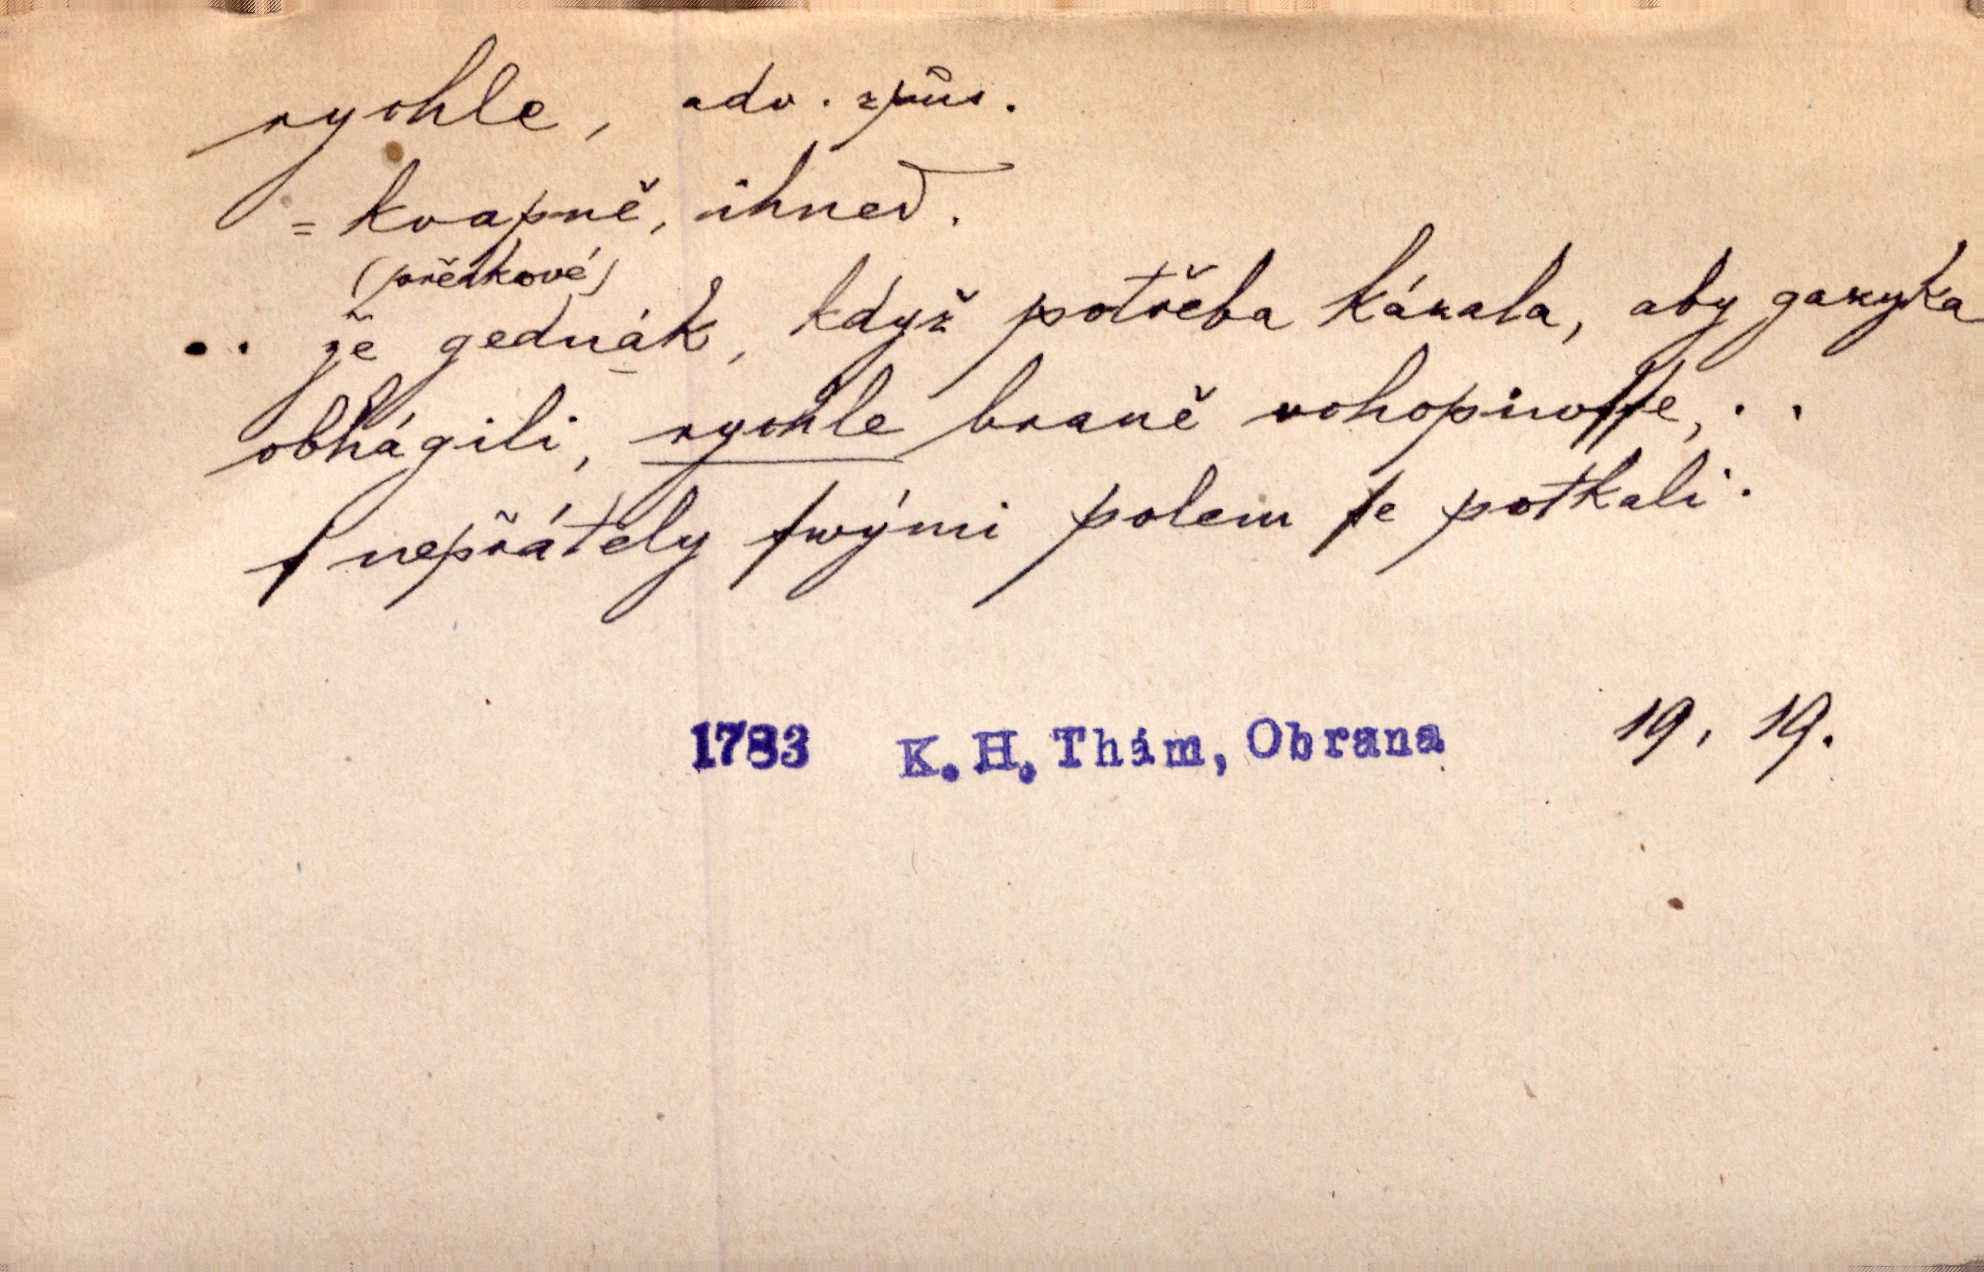 rychle, adv. způs.
= kvapně, ihneď.
(předkové)
.. že gednák, když potřeba kázala, aby gazyka
obhágili, rychle braně vchopiwſſe, ..
ſ nepřátely ſwými polem ſe potkali.
1783 K. H. Thám, Obrana 19, 19.